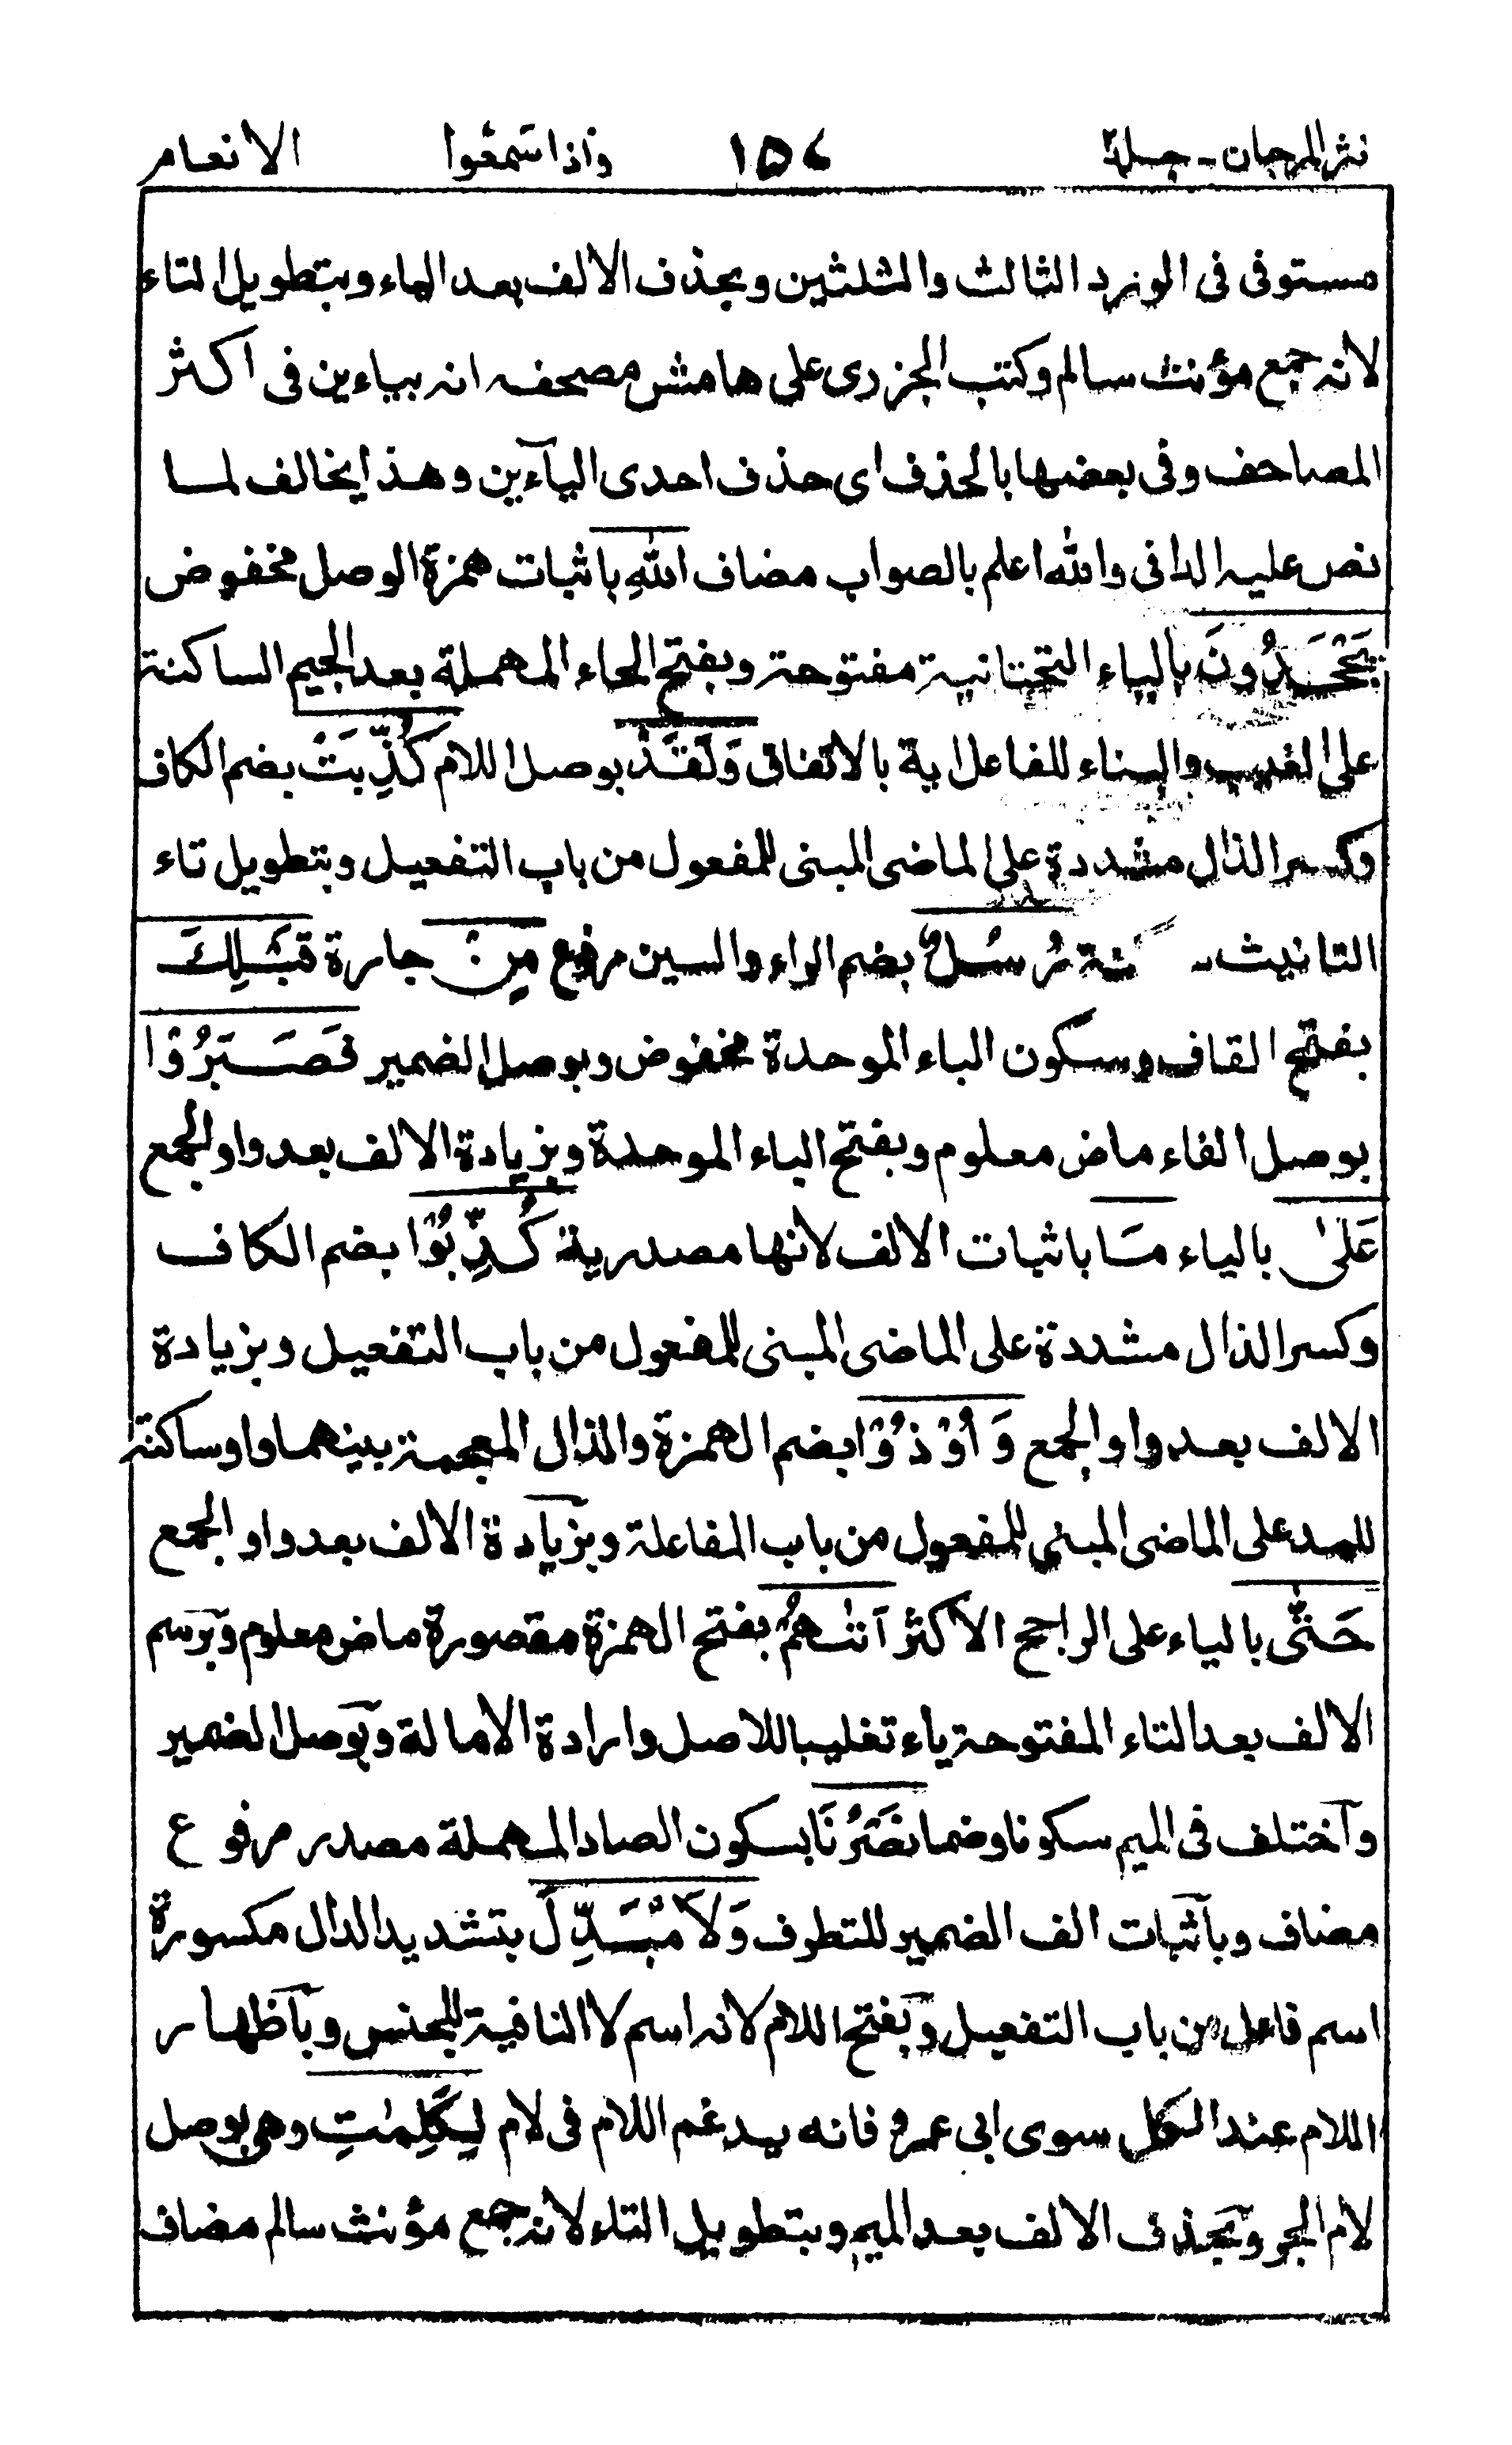 نثر المرجان - جلد٢ ١٥٤ واذا سَمعُوا الانعام
مستوفى فى الورد الثالث والثلثين وبحذف الالف بعد الياء وبتطويل التاء
لانه جمع مؤنث سالم وكتب الجزرى على هامش مصحفه انه بياءين فى اكثر
المصاحف وفى بعضها بالحذف اى حذف احدى اليآءين وهذا يخالف لما
نص عليه الدانى والله اعلم بالصواب مضاف اللهِ باثبات همزة الوصل مخفوض
يَجْحَدُونَ بالياء التحتانية مفتوحة وبفتح الحاء المهملة بعد الجيم الساكنة
على الغيب والبناء للفاعل اية بالاتفاق وَلَقَدْ بوصل اللام كُذِّبَتْ بضم الكاف
وكسر الذال مشددة على الماضى المبنى للمفعول من باب التفعيل وبتطويل تاء
التانيث - رُسُلٌ بضم الراء والسين مرفوع مِنْ جارة قَبْلِكَ
بفتح القاف وسكون الباء الموحدة مخفوض وبوصل الضمير فَصَبَرُوْا
بوصل الفاء ماض معلوم وبفتح الباء الموحدة وبزيادة الالف بعد واو الجمع
عَلٰى بالياء مَا باثبات الالف لانها مصدرية كُذِّبُوْا بضم الكاف
وكسر الذال مشددة على الماضى المبنى للمفعول من باب التفعيل وبزيادة
الالف بعد واو الجمع وَ اُوْذُوْا بضم الهمزة والذال المعجمة بينهما واو ساكنة
للمد على الماضى المبنى للمفعول من باب المفاعلة وبزيادة الالف بعد واو الجمع
حَتّٰى بالياء على الراجح الاكثر اَتٰىهُمْ بفتح الهمزة مقصورة ماض معلوم وبرسم
الالف بعد التاء المفتوحة ياء تغليبا للاصل وارادة الامالة وبوصل الضمير
وآختلف فى الميم سكونا وضما نَصْرُنَا بسكون الصاد المهملة مصدر مرفوع
مضاف وبآثبات الف الضمير للتطرف وَلَا مُبَدِّلَ بتشديد الدال مكسورة
اسم فاعل من باب التفعيل وبفتح اللام لانه اسم لا النافية للجنس وبآظهار
اللام عند الكل سوى ابى عمرو فانه يدغم اللام فى لام لِكَلِمٰتِ وهى بوصل
لام الجر وبحذف الالف بعد الميم وبتطويل التاء لانه جمع مؤنث سالم مضاف